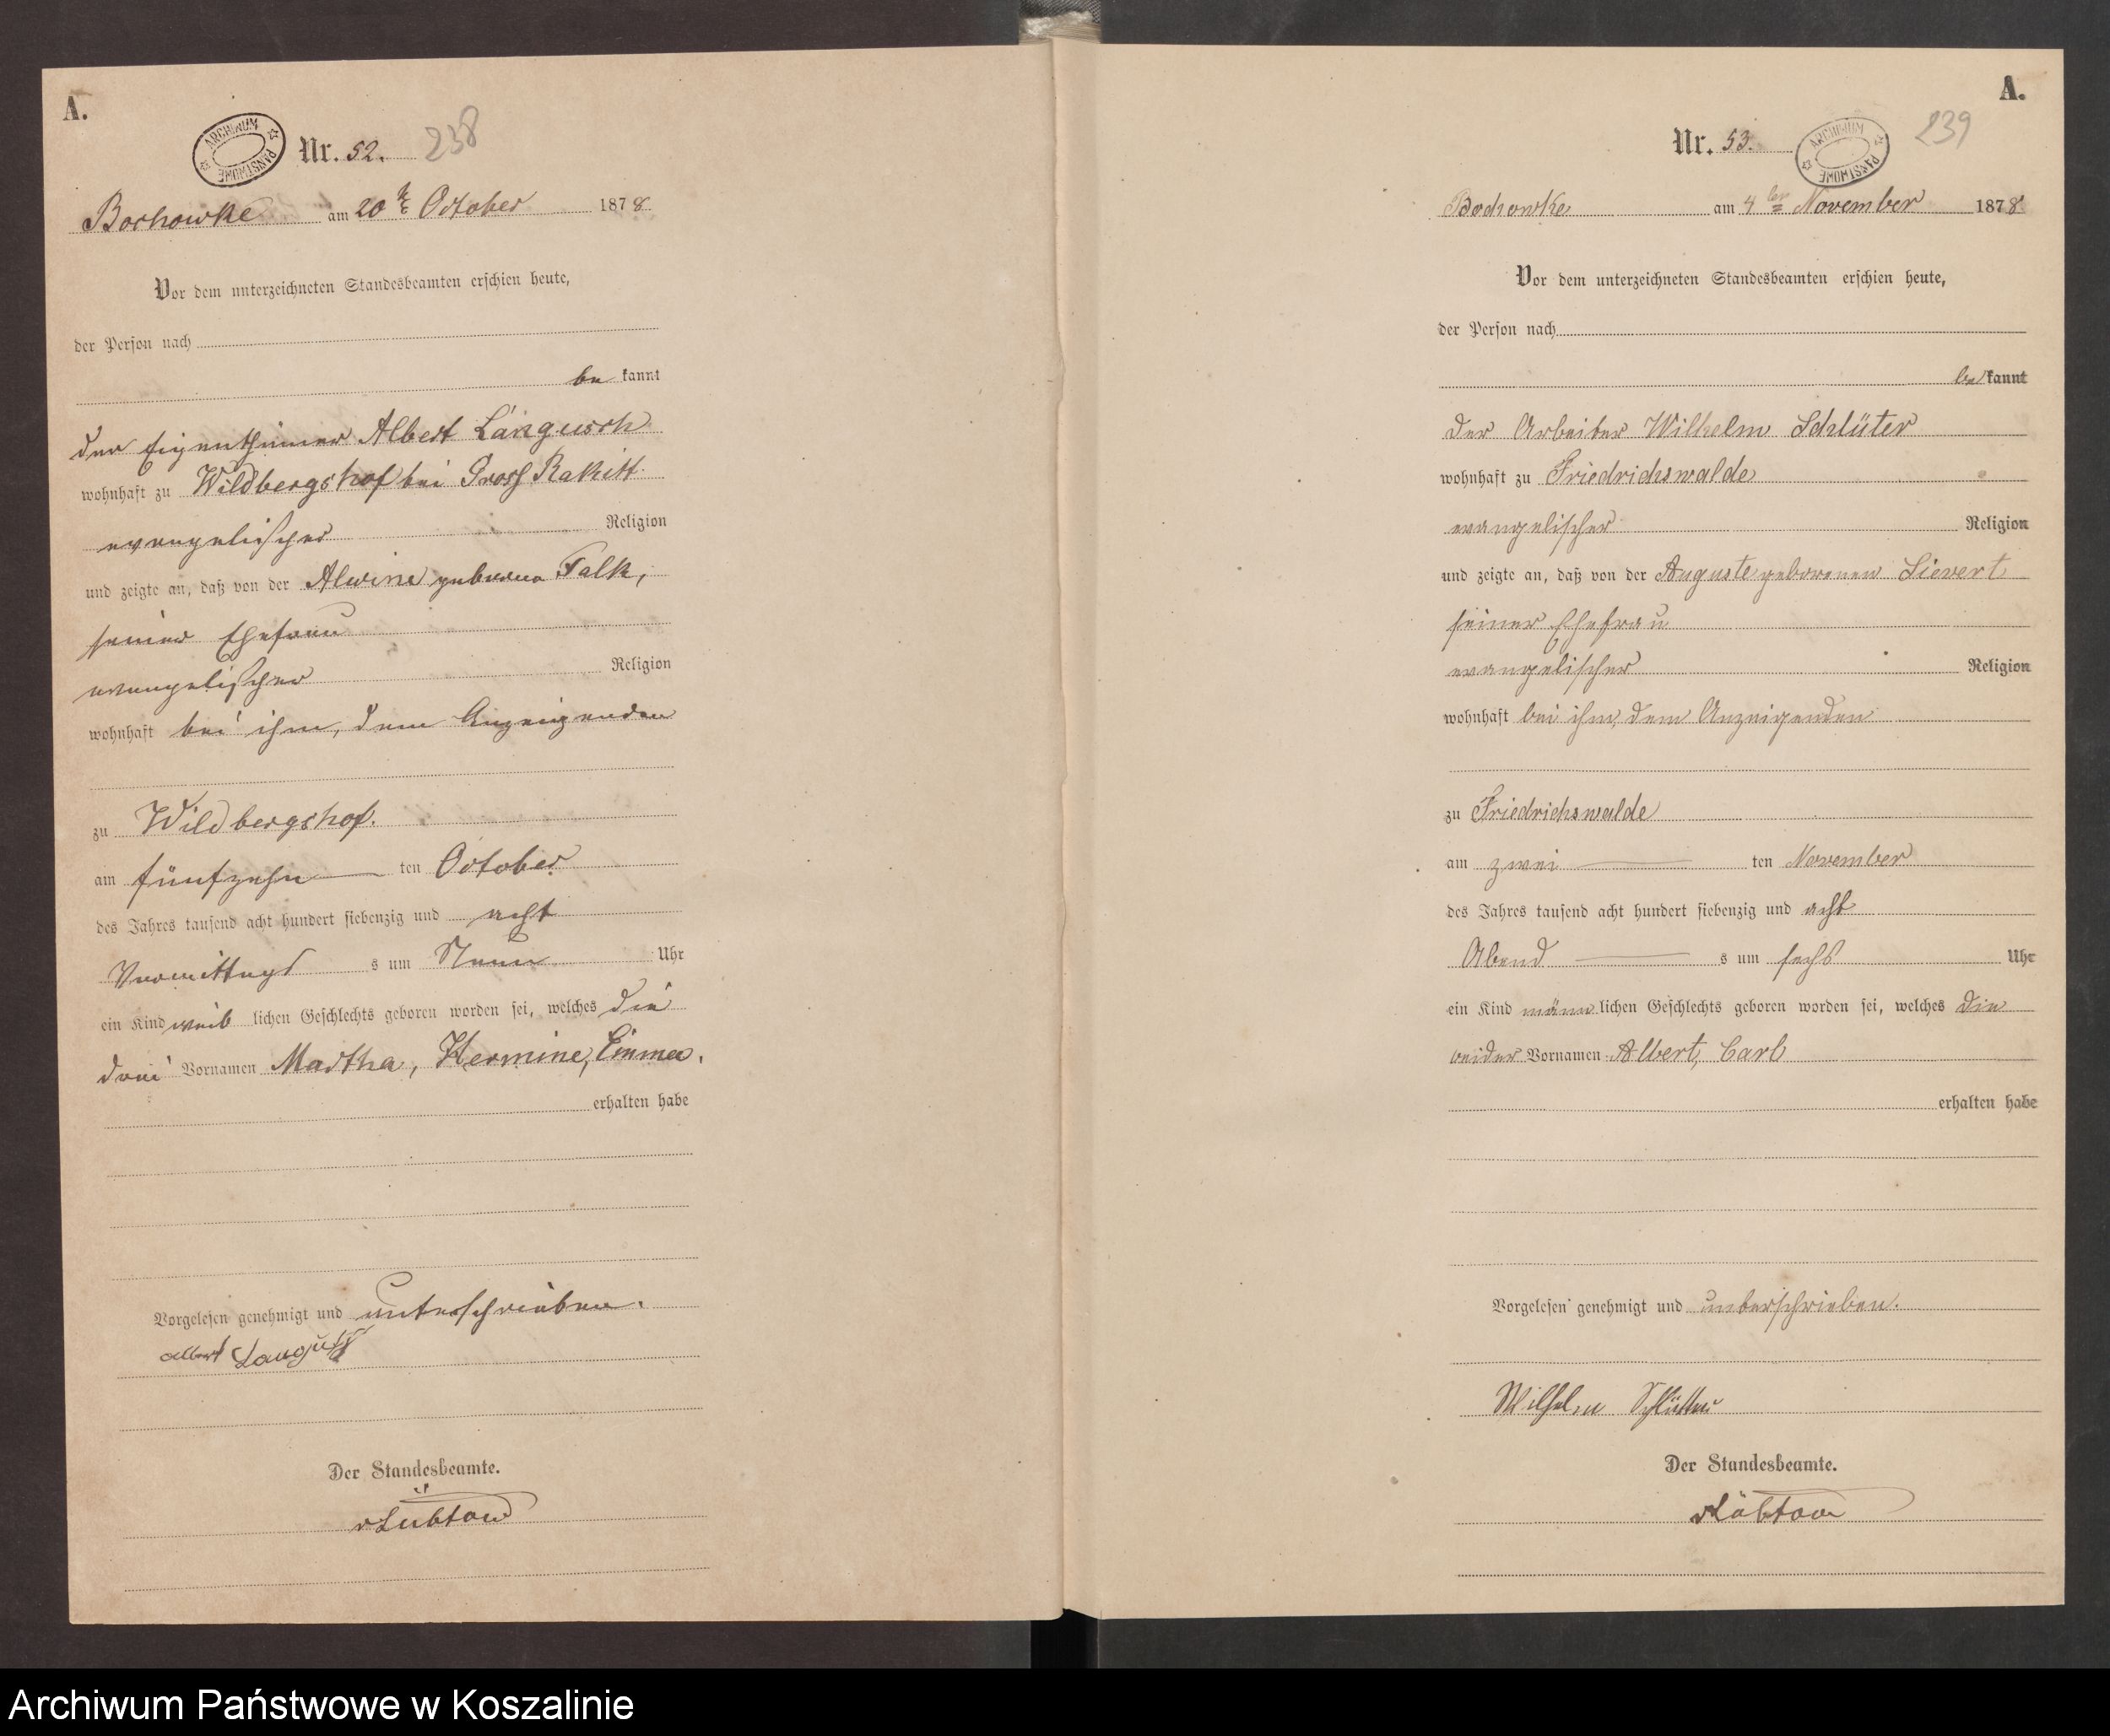 A.
ARCHIWUM PAŃSTWOWE
Nr. 52. 238
Bochowke am 20te October 1878
Vor dem unterzeichneten Standesbeamten erschien heute,
der Person nach
be kannt
der Eigenthümer Albert Langusch
wohnhaft zu Wildbergshof bei Gross Rakitt
evangelischer Religion
und zeigte an, daß von der Alwine geborne Falk,
seiner Ehefrau
evangelischer Religion
wohnhaft bei ihm, dem Anzeigenden
zu Wildbergshof.
am fünfzehn ten October
des Jahres tausend acht hundert siebenzig und acht
Vormittags s um Neun Uhr
ein Kind weib lichen Geschlechts geboren worden sei, welches die
drei Vornamen Martha, Hermine, Emma.
erhalten habe
Vorgelesen genehmigt und unterschrieben.
Albert Langusch
Der Standesbeamte.
vLübtow
A.
Nr. 53. ARCHIWUM PAŃSTWOWE 239
Bochowke am 4ten November 1878
Vor dem unterzeichneten Standesbeamten erschien heute,
der Person nach
be kannt
der Arbeiter Wilhelm Schlüter
wohnhaft zu Friedrichswalde
evangelischer Religion
und zeigte an, daß von der Auguste geborenen Sievert
seiner Ehefrau
evangelischer Religion
wohnhaft bei ihm, dem Anzeigenden
zu Friedrichswalde
am zwei ten November
des Jahres tausend acht hundert siebenzig und acht
Abend s um sechs Uhr
ein Kind männ lichen Geschlechts geboren worden sei, welches die
Vornamen Albert, Carl
erhalten habe
Vorgelesen genehmigt und unterschrieben.
Wilhelm Schlütter
Der Standesbeamte.
vLübtow
Archiwum Państwowe w Koszalinie